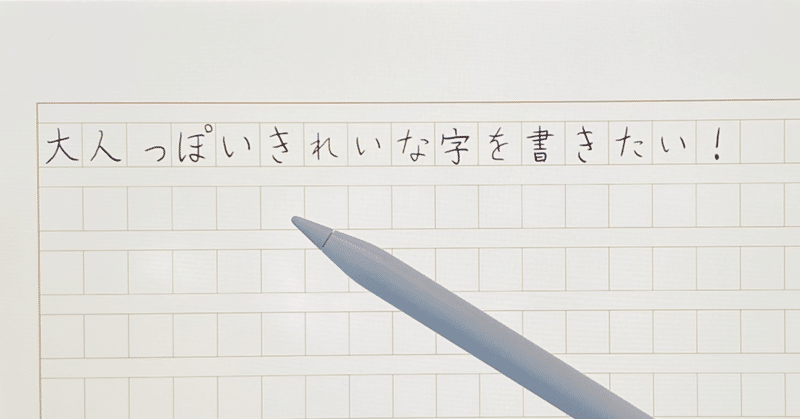 大人っぽいきれいな字を書きたい！